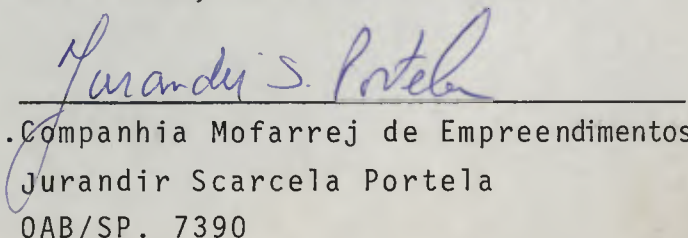 Jurandir S. Portela
.Companhia Mofarrej de Empreendimentos
Jurandir Scarcela Portela
OAB/SP. 7390